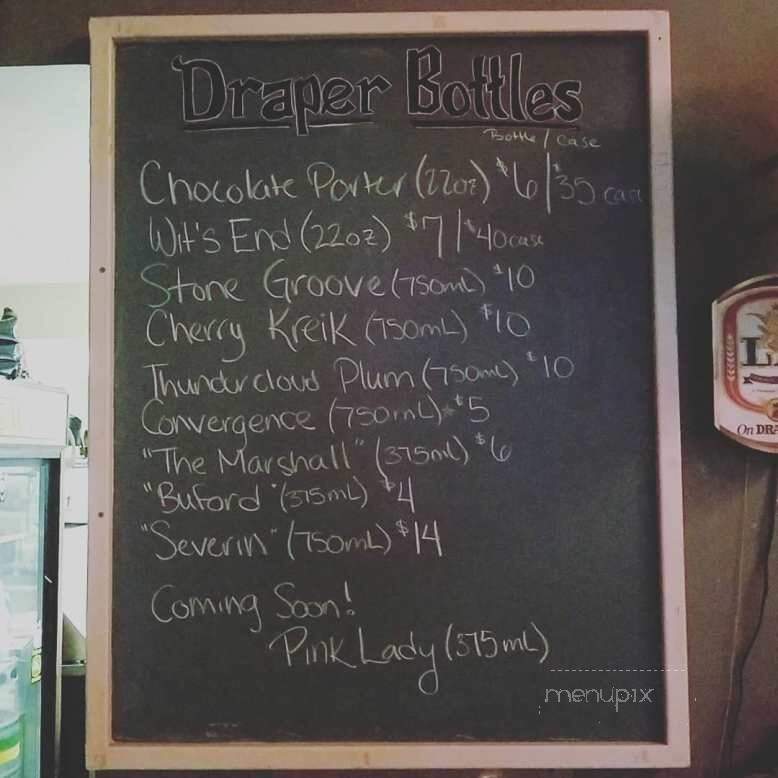 Draper Bottles
Bottle / case
Chocolate Porter (22oz) $6 | $35 case
Wit's End (22oz) $7 | $40 case
Stone Groove (750mL) $10
Cherry Kreik (750mL) $10
Thundercloud Plum (750mL) $10
Convergence (750mL) $5
"The Marshall" (375mL) $6
"Buford" (375mL) $4
"Severin" (750mL) $14
Coming Soon!
Pink Lady (375mL)
menupix
On